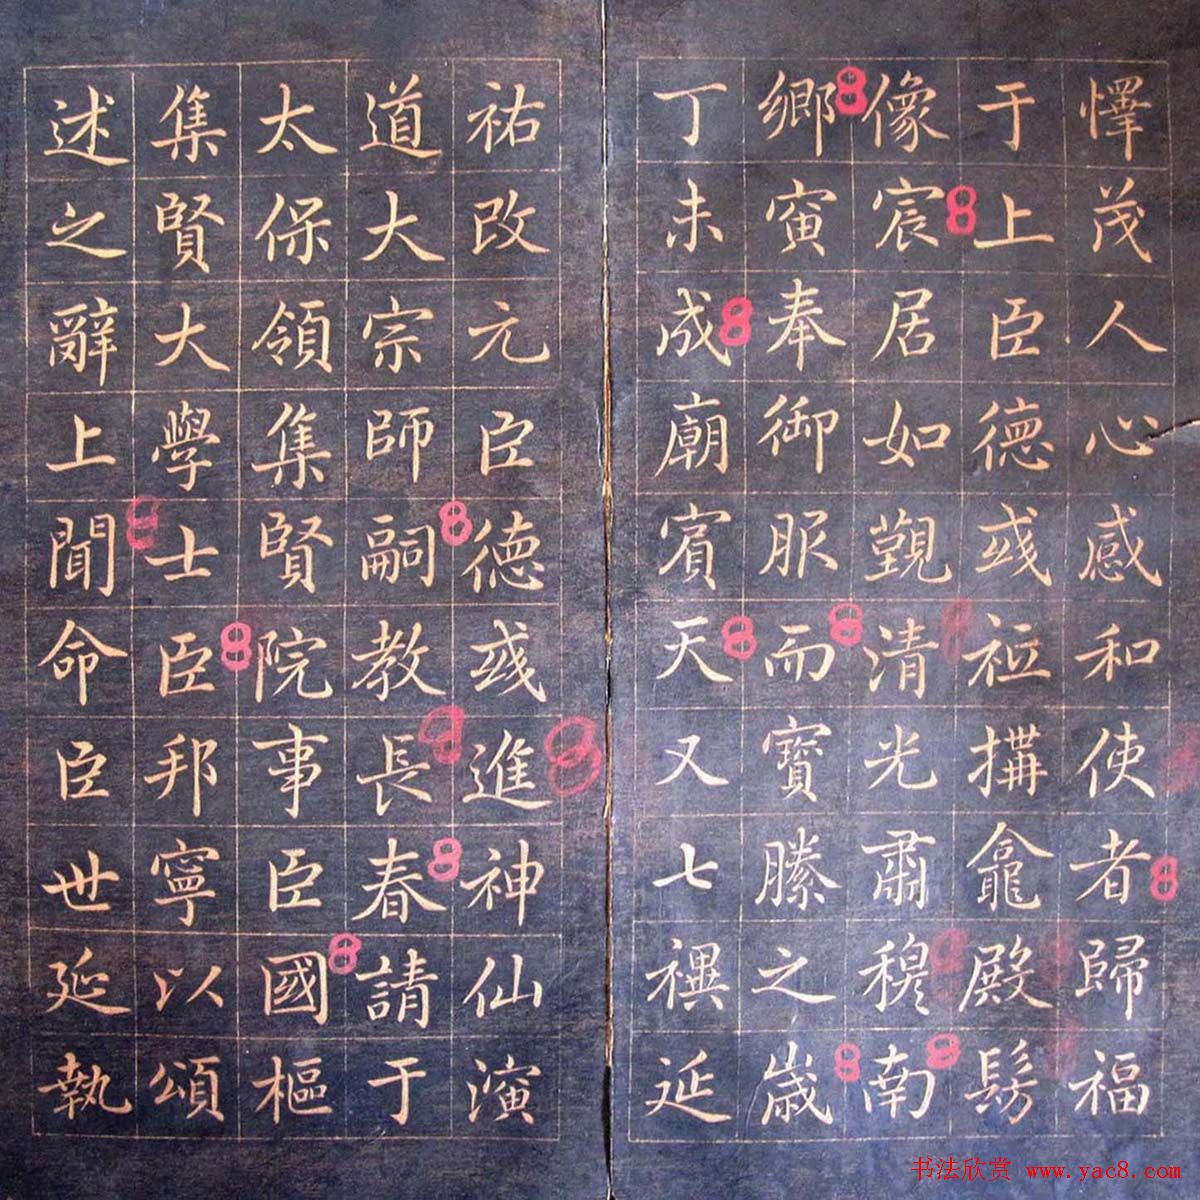 懌茂人心感和使者歸福
于上臣德彧祗搆龕殿髣
像宸居如覲清光肅穆南
鄉寅奉御服而寶縢之歲
丁未成廟賓天又七禩延
祐改元臣德彧進神仙演
道大宗師嗣教長春請于
太保領集賢院事臣國樞
集賢大學士臣邦寧以頌
述之辭上聞命臣世延執
书法欣赏 www.yac8.com